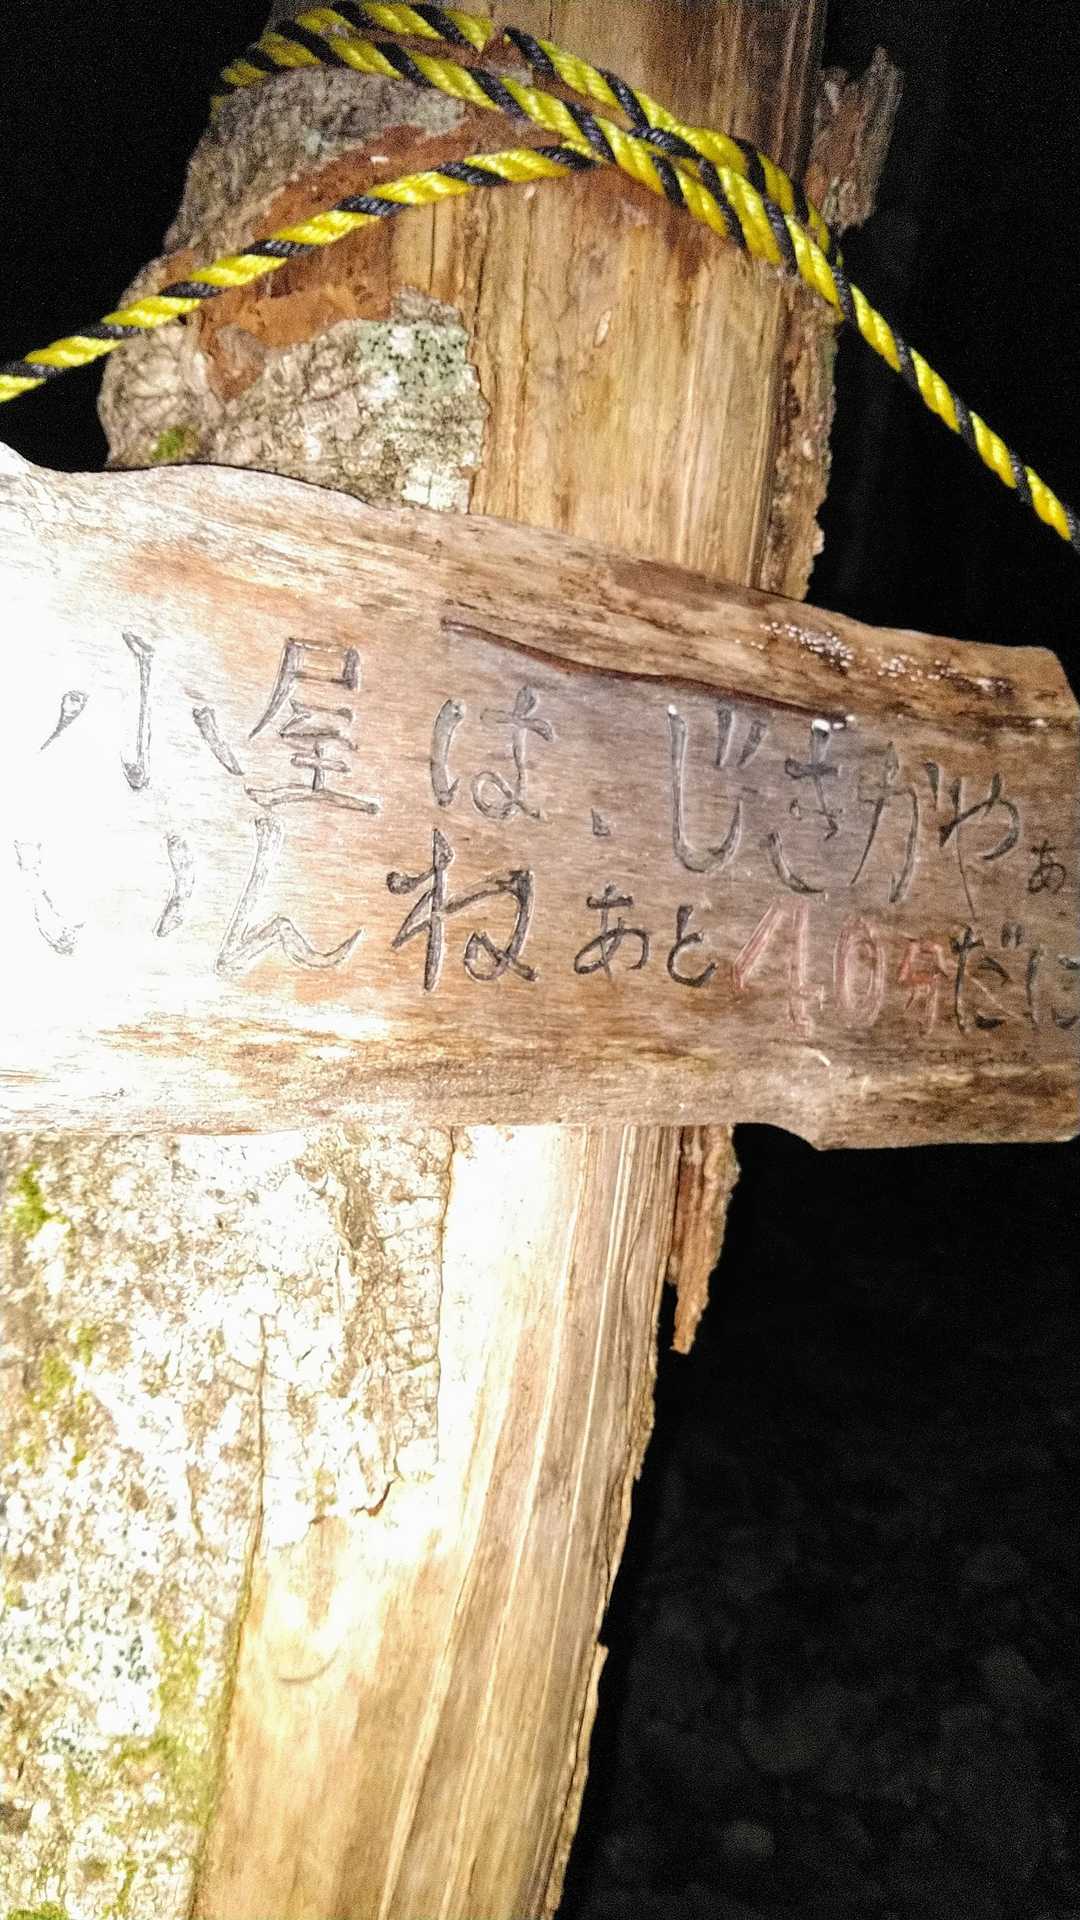 小屋は、じきがやぁ
いいんねあと40分だに